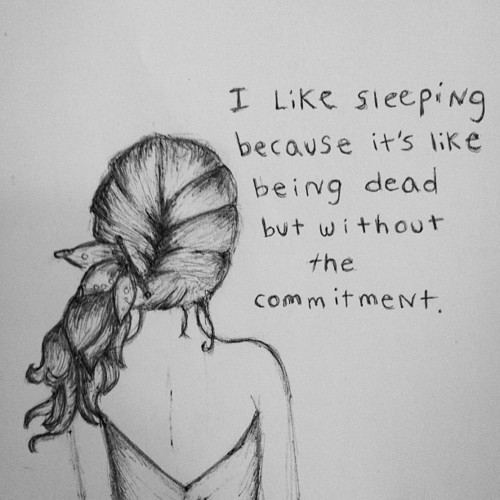 I LiKe sleepiNg
because it's like
beiNg dead
but without
the
commitmeNt.